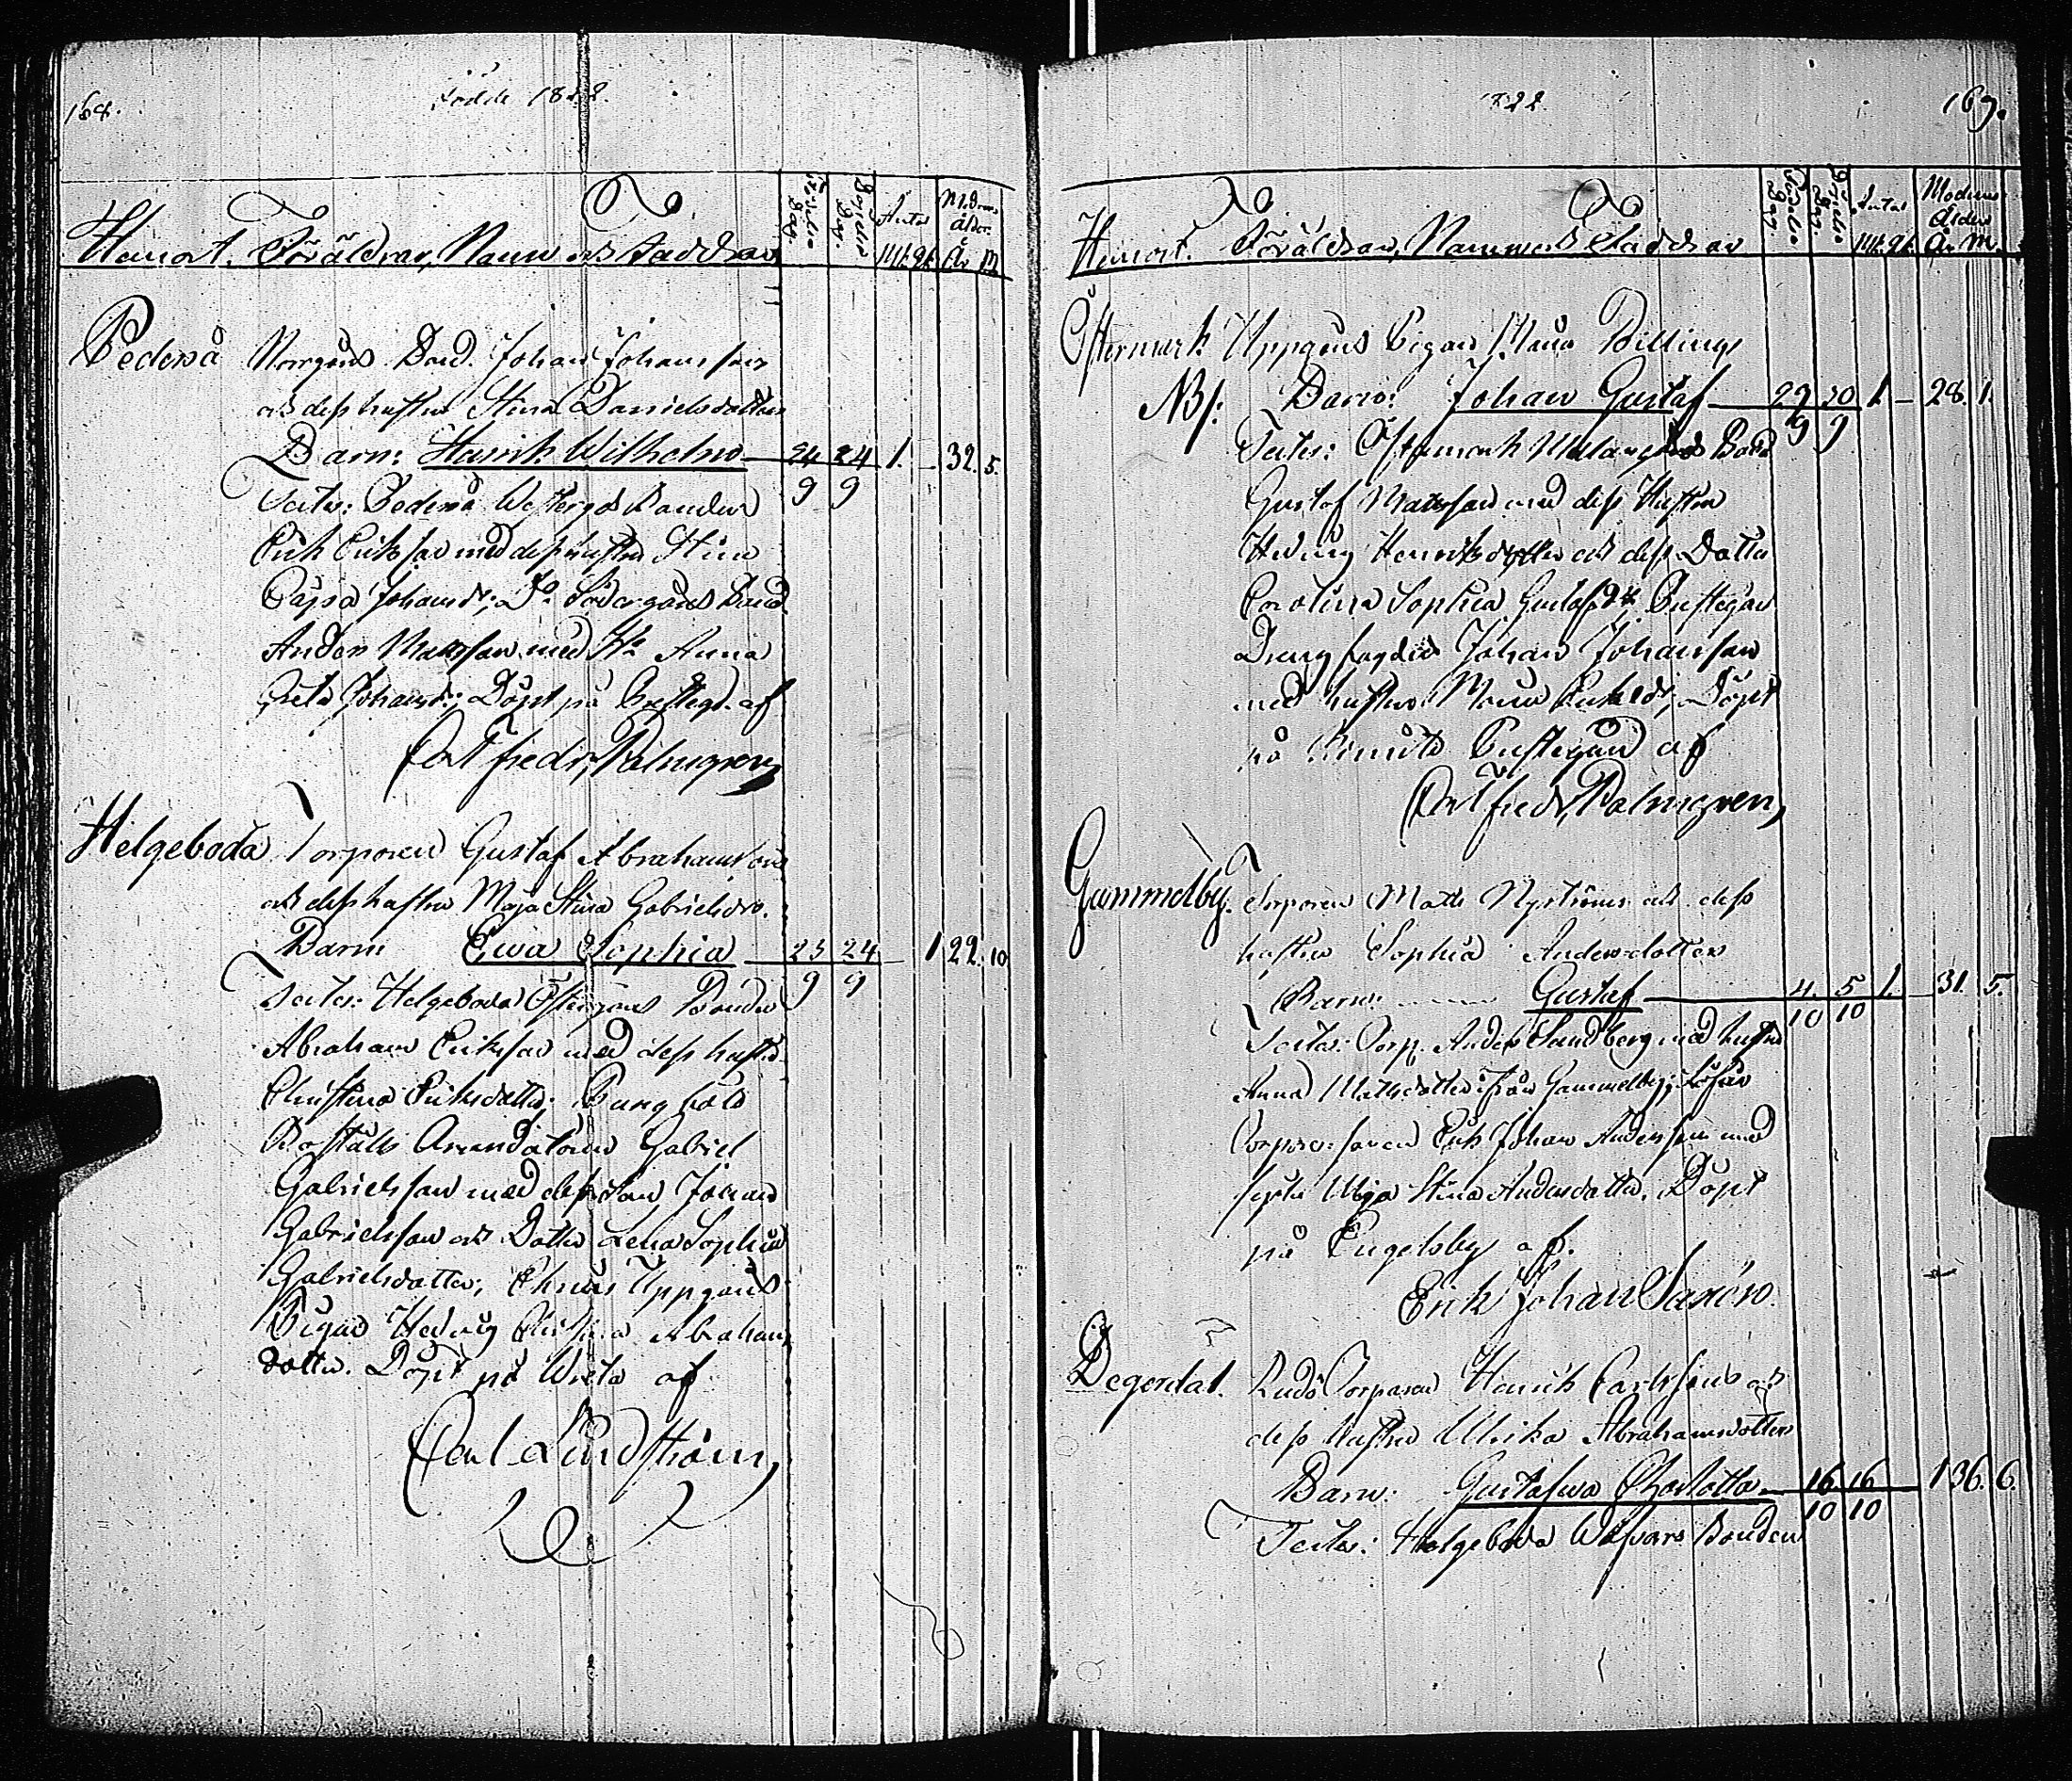 168.
Födde 1822.
Hemort. Föräldrar, Namn och Faddrar
Födelse Dag. Antal Moders ålder.
Mk. Qk. År M.
Pederså Norrgårds Bond. Johan Johanssons
och dess hustru Stina Danielsdotters
Barn: Henrik Wilhelm 24 24 1. - 32. 5.
9 9
Testes: Pederså Westergds Bonden
Erik Eriksson med dess hustru Stina
Cajsa Johansdr; Do Södergårds Bond
Anders Mattsson med Ho Anna
Greta Johansdr; Döpt på Prestegd. af
Carl Fredr. Palmgren
Helgeboda Torparen Gustaf Abrahamssons
och dess hustru Maja Stina Gabrielsdrs.
Barn Ewa Sophia 23 24 - 1 22. 10
9 9
Testes: Helgeboda Östergårds Bonden
Abraham Eriksson med dess hustru
Christina Eriksdotter;
Boställs Arrendatorn Gabriel
Gabrielsson med dess son Johan
Gabrielsson och Dotter Lena Sophia
Gabrielsdotter; Uppgårds
Pigan Hedvig Christina Abrahams
dotter. Döpt på Wreta af
Carl Lindström
1822. 169.
Hemort. Föräldrar, Namn och Faddrar
Födelse Dag. Antal Moders Ålder
Mk. Qk. År M.
Östermark Uppgårds Pigan Maria Billings
NB. Barn: Johan Gustaf 29 30 1 - 28. 1.
9 9
Testes: Östermark Bond
Gustaf Mattsson med dess Hustru
Hedvig Henriksdotter och dess Dotter
Carolina Sophia Gustafsdr; Prestegårds
Drengfogden Johan Johansson
med hustru Maria Eriksdr; Döpt
på Kimito Prestegård af
Carl Fredr. Palmgren
Gammelby. Torparen Matts Nyströms och dess
hustru Sophia Andersdotters
Barn: Gustaf 4. 5 1. - 31. 5.
10 10
Testes: Torp. Anders Sundberg med hustru
Anna Mattsdotter från Gammelby;
Torpare sonen Erik Johan Andersson med
syster Maja Stina Andersdotter. Döpt
på Engelsby af.
Erik Johan Saxén.
Degerdal. Rudö Torparen Henrik Carlssons och
dess hustru Ulrika Abrahamsdotters
Barn: Gustafwa Charlotta 16. 16 - 1 36. 6.
10 10
Testes: Helgeboda Bonden